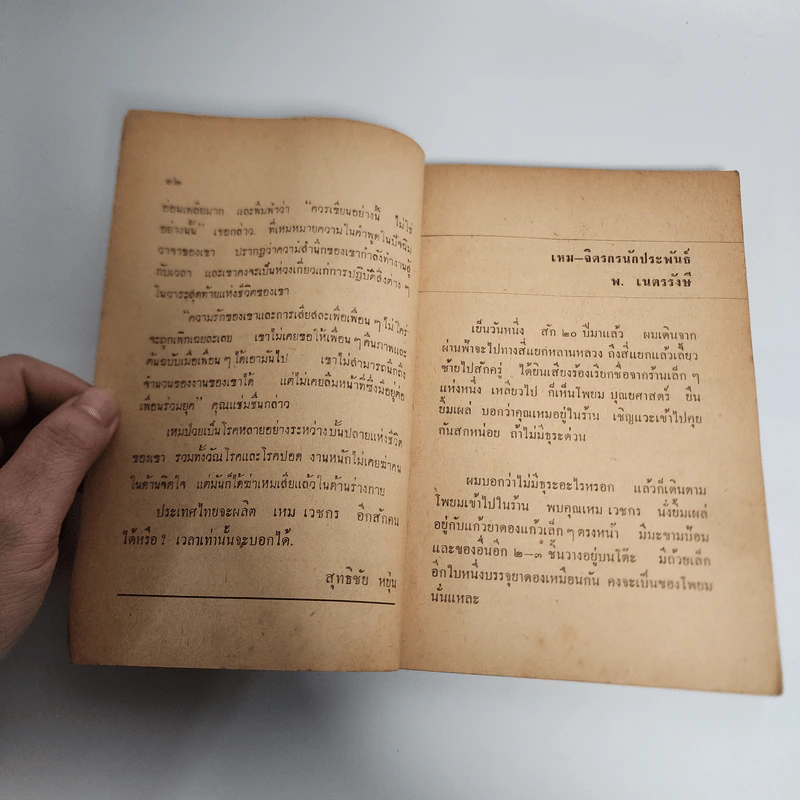 ๑๒
อ่อนเพลียมาก และพึมพำว่า “ควรเขียนอย่างนี้ ไม่ใช่
อย่างนั้น” เธอกล่าว. ที่เหมหมายความในคำพูดในปัจฉิม
วาจาของเขา ปรากฏว่าความสำนึกของเขากำลังทำงานสู้
กับเวลา และเขาคงจะเป็นห่วงเกี่ยวแก่การปฏิบัติสิ่งต่าง ๆ
ในวาระสุดท้ายแห่งชีวิตของเขา
“ความรักของเขาและการเสียสละเพื่อเพื่อน ๆ ไม่ใคร่
จะถูกเพิกเฉยละเลย เขาไม่เคยขอให้เพื่อน ๆ คืนภาพและ
ต้นฉบับเมื่อเพื่อน ๆ ได้เอามันไป เขาไม่สามารถนึกถึง
จำนวนของงานของเขาได้ แต่ไม่เคยลืมหน้าที่ซึ่งมีอยู่ต่อ
เพื่อนร่วมยุค” คุณแช่มชื่นกล่าว
เหมป่วยเป็นโรคหลายอย่างระหว่างบั้นปลายแห่งชีวิต
ของเขา รวมทั้งวัณโรคและโรคปอด งานหนักไม่เคยฆ่าคน
ในด้านจิตใจ แต่มันก็ได้ฆ่าเหมเสียแล้วในด้านร่างกาย
ประเทศไทยจะผลิต เหม เวชกร อีกสักคน
ได้หรือ? เวลาเท่านั้นจะบอกได้.
สุทธิชัย หยุ่น
เหม–จิตรกรนักประพันธ์
พ. เนตรรังษี
เย็นวันหนึ่ง สัก ๒๐ ปีมาแล้ว ผมเดินจาก
ผ่านฟ้าจะไปทางสี่แยกหลานหลวง ถึงสี่แยกแล้วเลี้ยว
ซ้ายไปสักครู่ ได้ยินเสียงร้องเรียกชื่อจากร้านเล็ก ๆ
แห่งหนึ่ง เหลียวไป ก็เห็นโพยม บุณยศาสตร์ ยืน
ยิ้มเผล่ บอกว่าคุณเหมอยู่ในร้าน เชิญแวะเข้าไปคุย
กันสักหน่อย ถ้าไม่มีธุระด่วน
ผมบอกว่าไม่มีธุระอะไรหรอก แล้วก็เดินตาม
โพยมเข้าไปในร้าน พบคุณเหม เวชกร นั่งยิ้มเผล่
อยู่กับแก้วยาดองแก้วเล็ก ๆ ตรงหน้า มีมะขามป้อม
และของอื่นอีก ๒–๓ ชิ้นวางอยู่บนโต๊ะ มีถ้วยเล็ก
อีกใบหนึ่งบรรจุยาดองเหมือนกัน คงจะเป็นของโพยม
นั่นแหละ